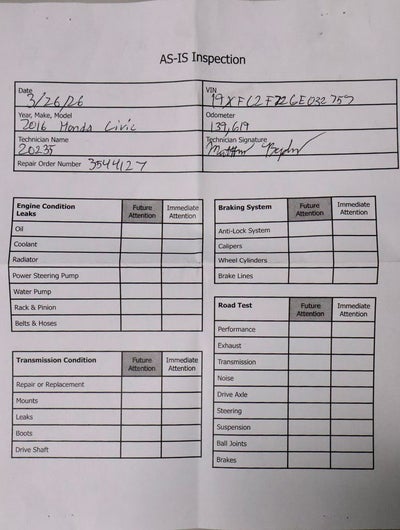 AS-IS Inspection
Date
3/26/26
VIN
19XFC2F72GE032757
Year, Make, Model
2016 Honda Civic
Odometer
139,619
Technician Name
20235
Technician Signature
Repair Order Number 3544127
Engine Condition Future Immediate
Leaks Attention Attention
Oil
Coolant
Radiator
Power Steering Pump
Water Pump
Rack & Pinion
Belts & Hoses
Transmission Condition Future Immediate
Attention Attention
Repair or Replacement
Mounts
Leaks
Boots
Drive Shaft
Braking System Future Immediate
Attention Attention
Anti-Lock System
Calipers
Wheel Cylinders
Brake Lines
Road Test Future Immediate
Attention Attention
Performance
Exhaust
Transmission
Noise
Drive Axle
Steering
Suspension
Ball Joints
Brakes